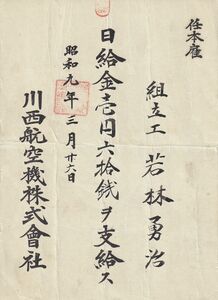 任本雇
組立工 若林勇治
日給金壱円六拾銭ヲ支給ス
昭和九年三月廿六日
川西航空機株式會社